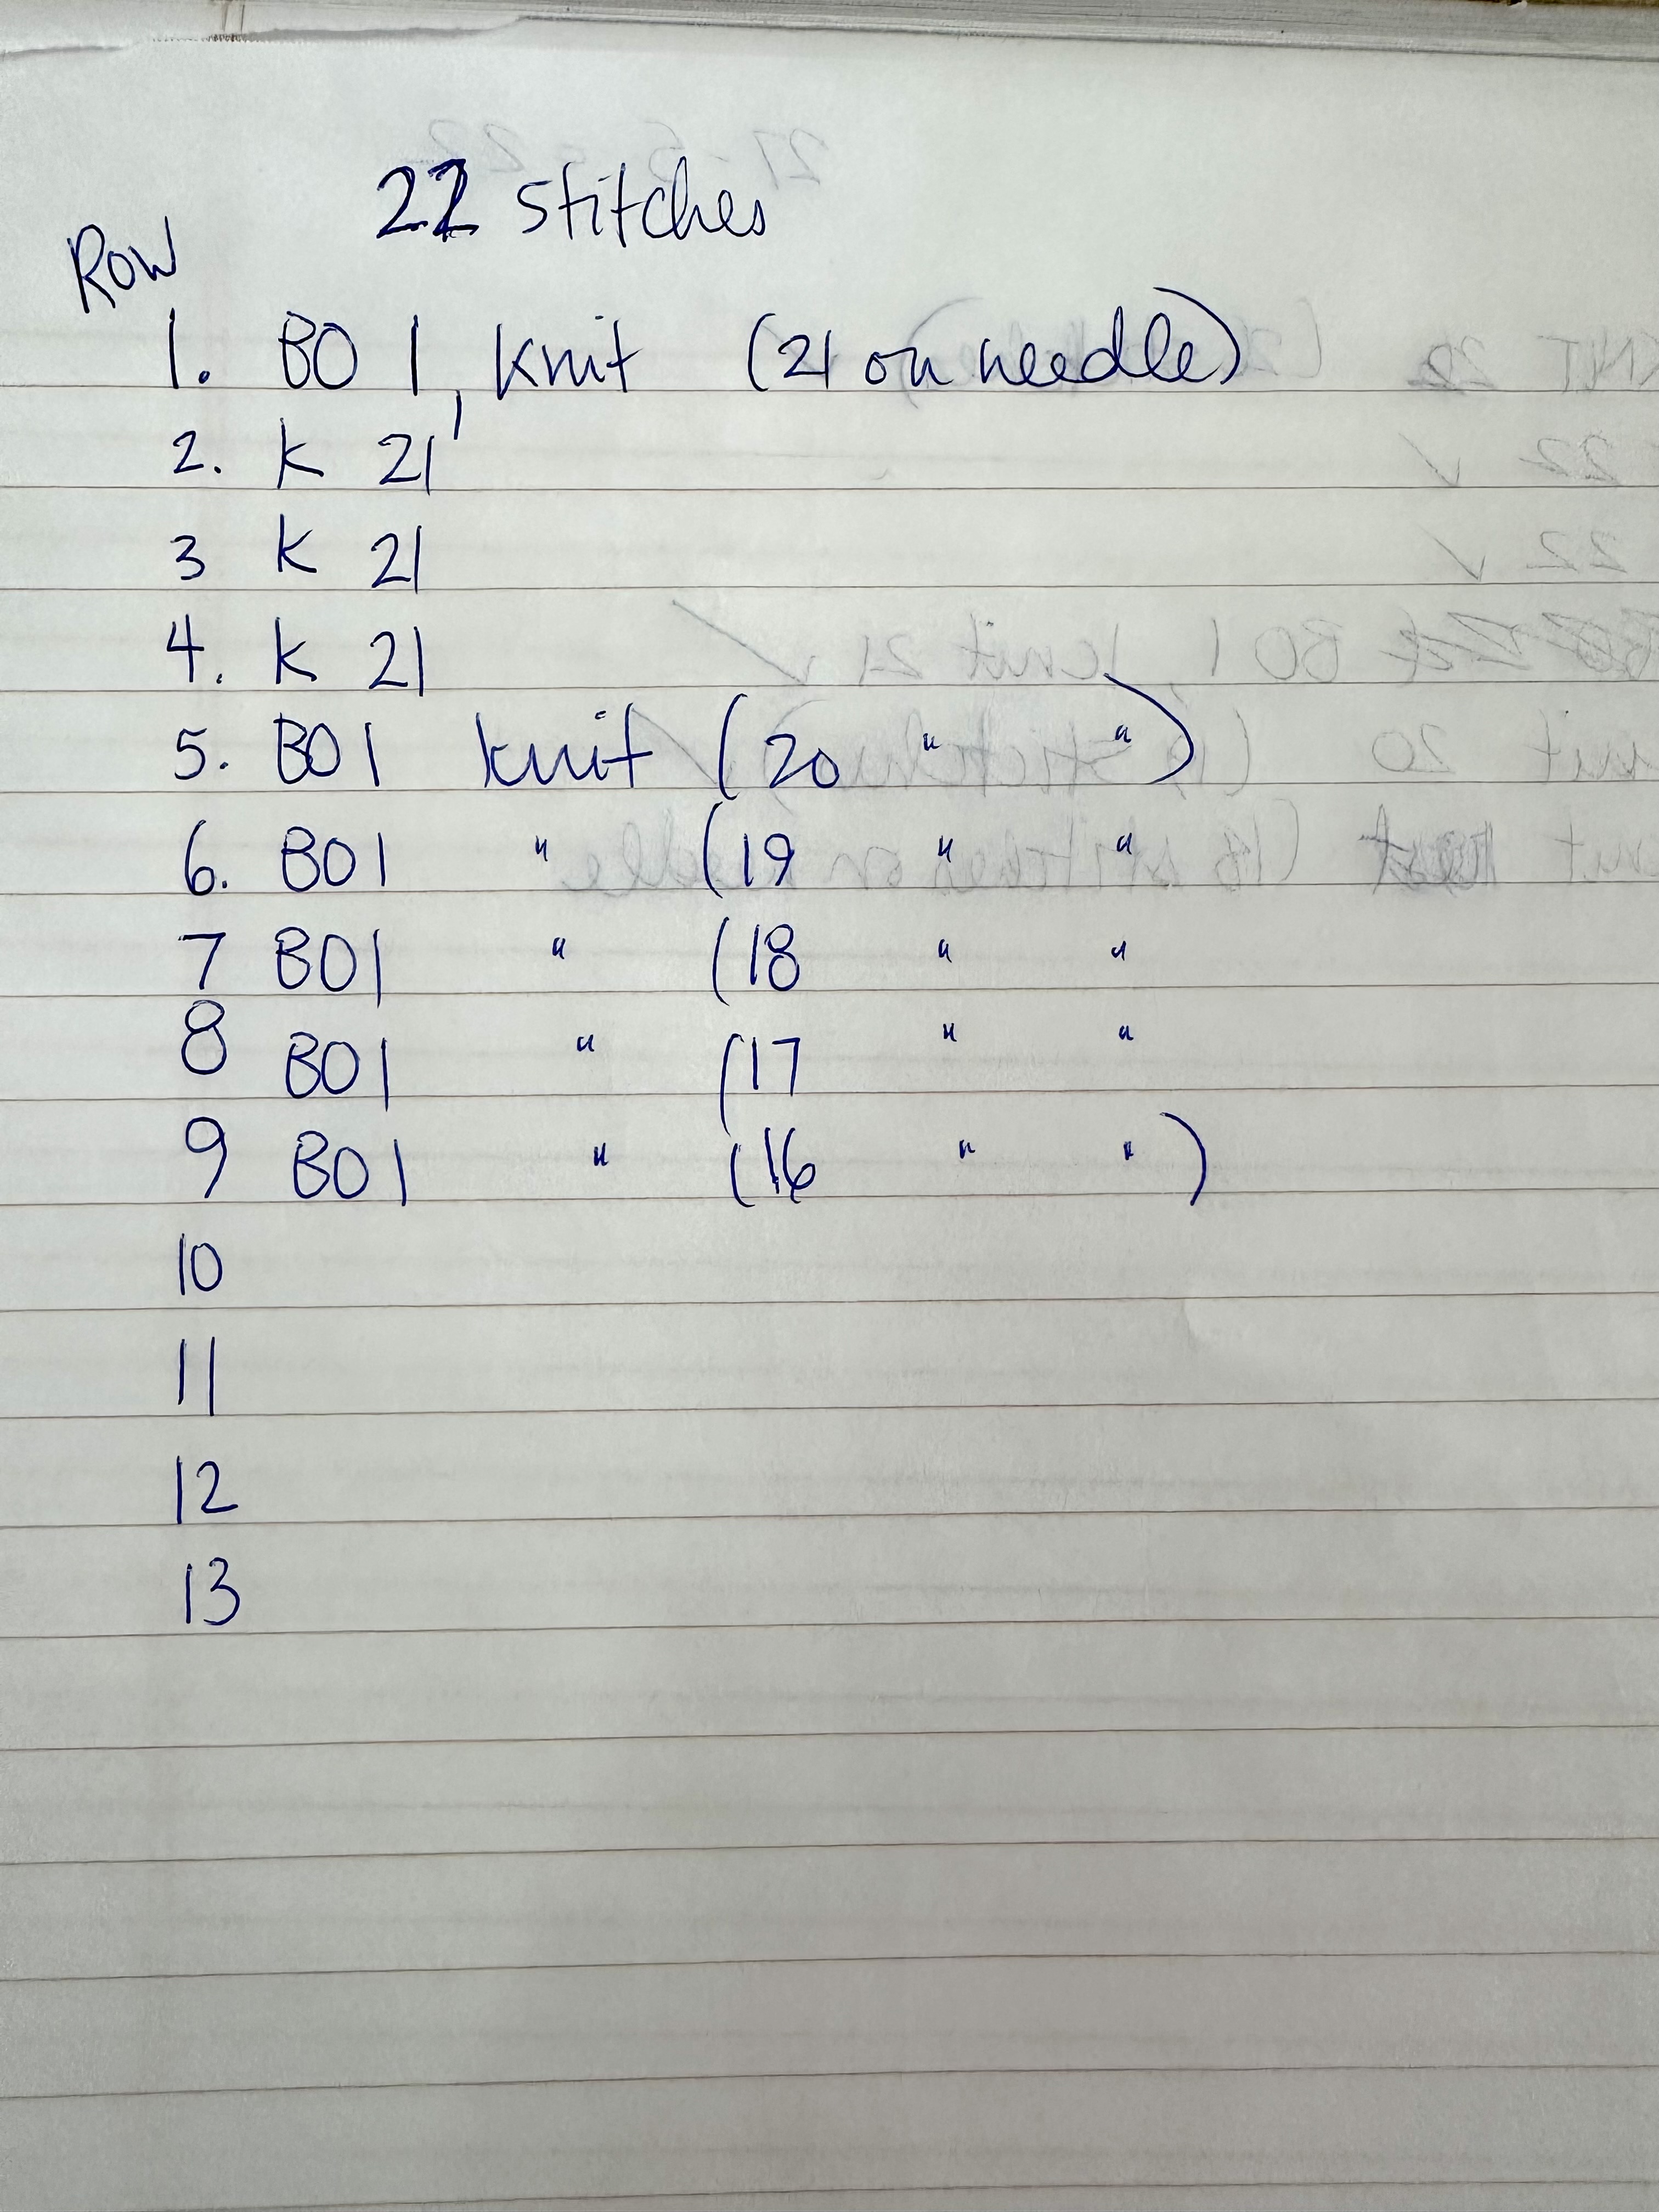 22 stitches
Row
1. BO 1, knit (21 on needle)
2. K 21
3 K 21
4. K 21
5. BO1 knit (20 " ")
6. BO1 " (19 " "
7 BO1 " (18 " "
8 BO1 " (17 " "
9 BO1 " (16 " ")
10
11
12
13